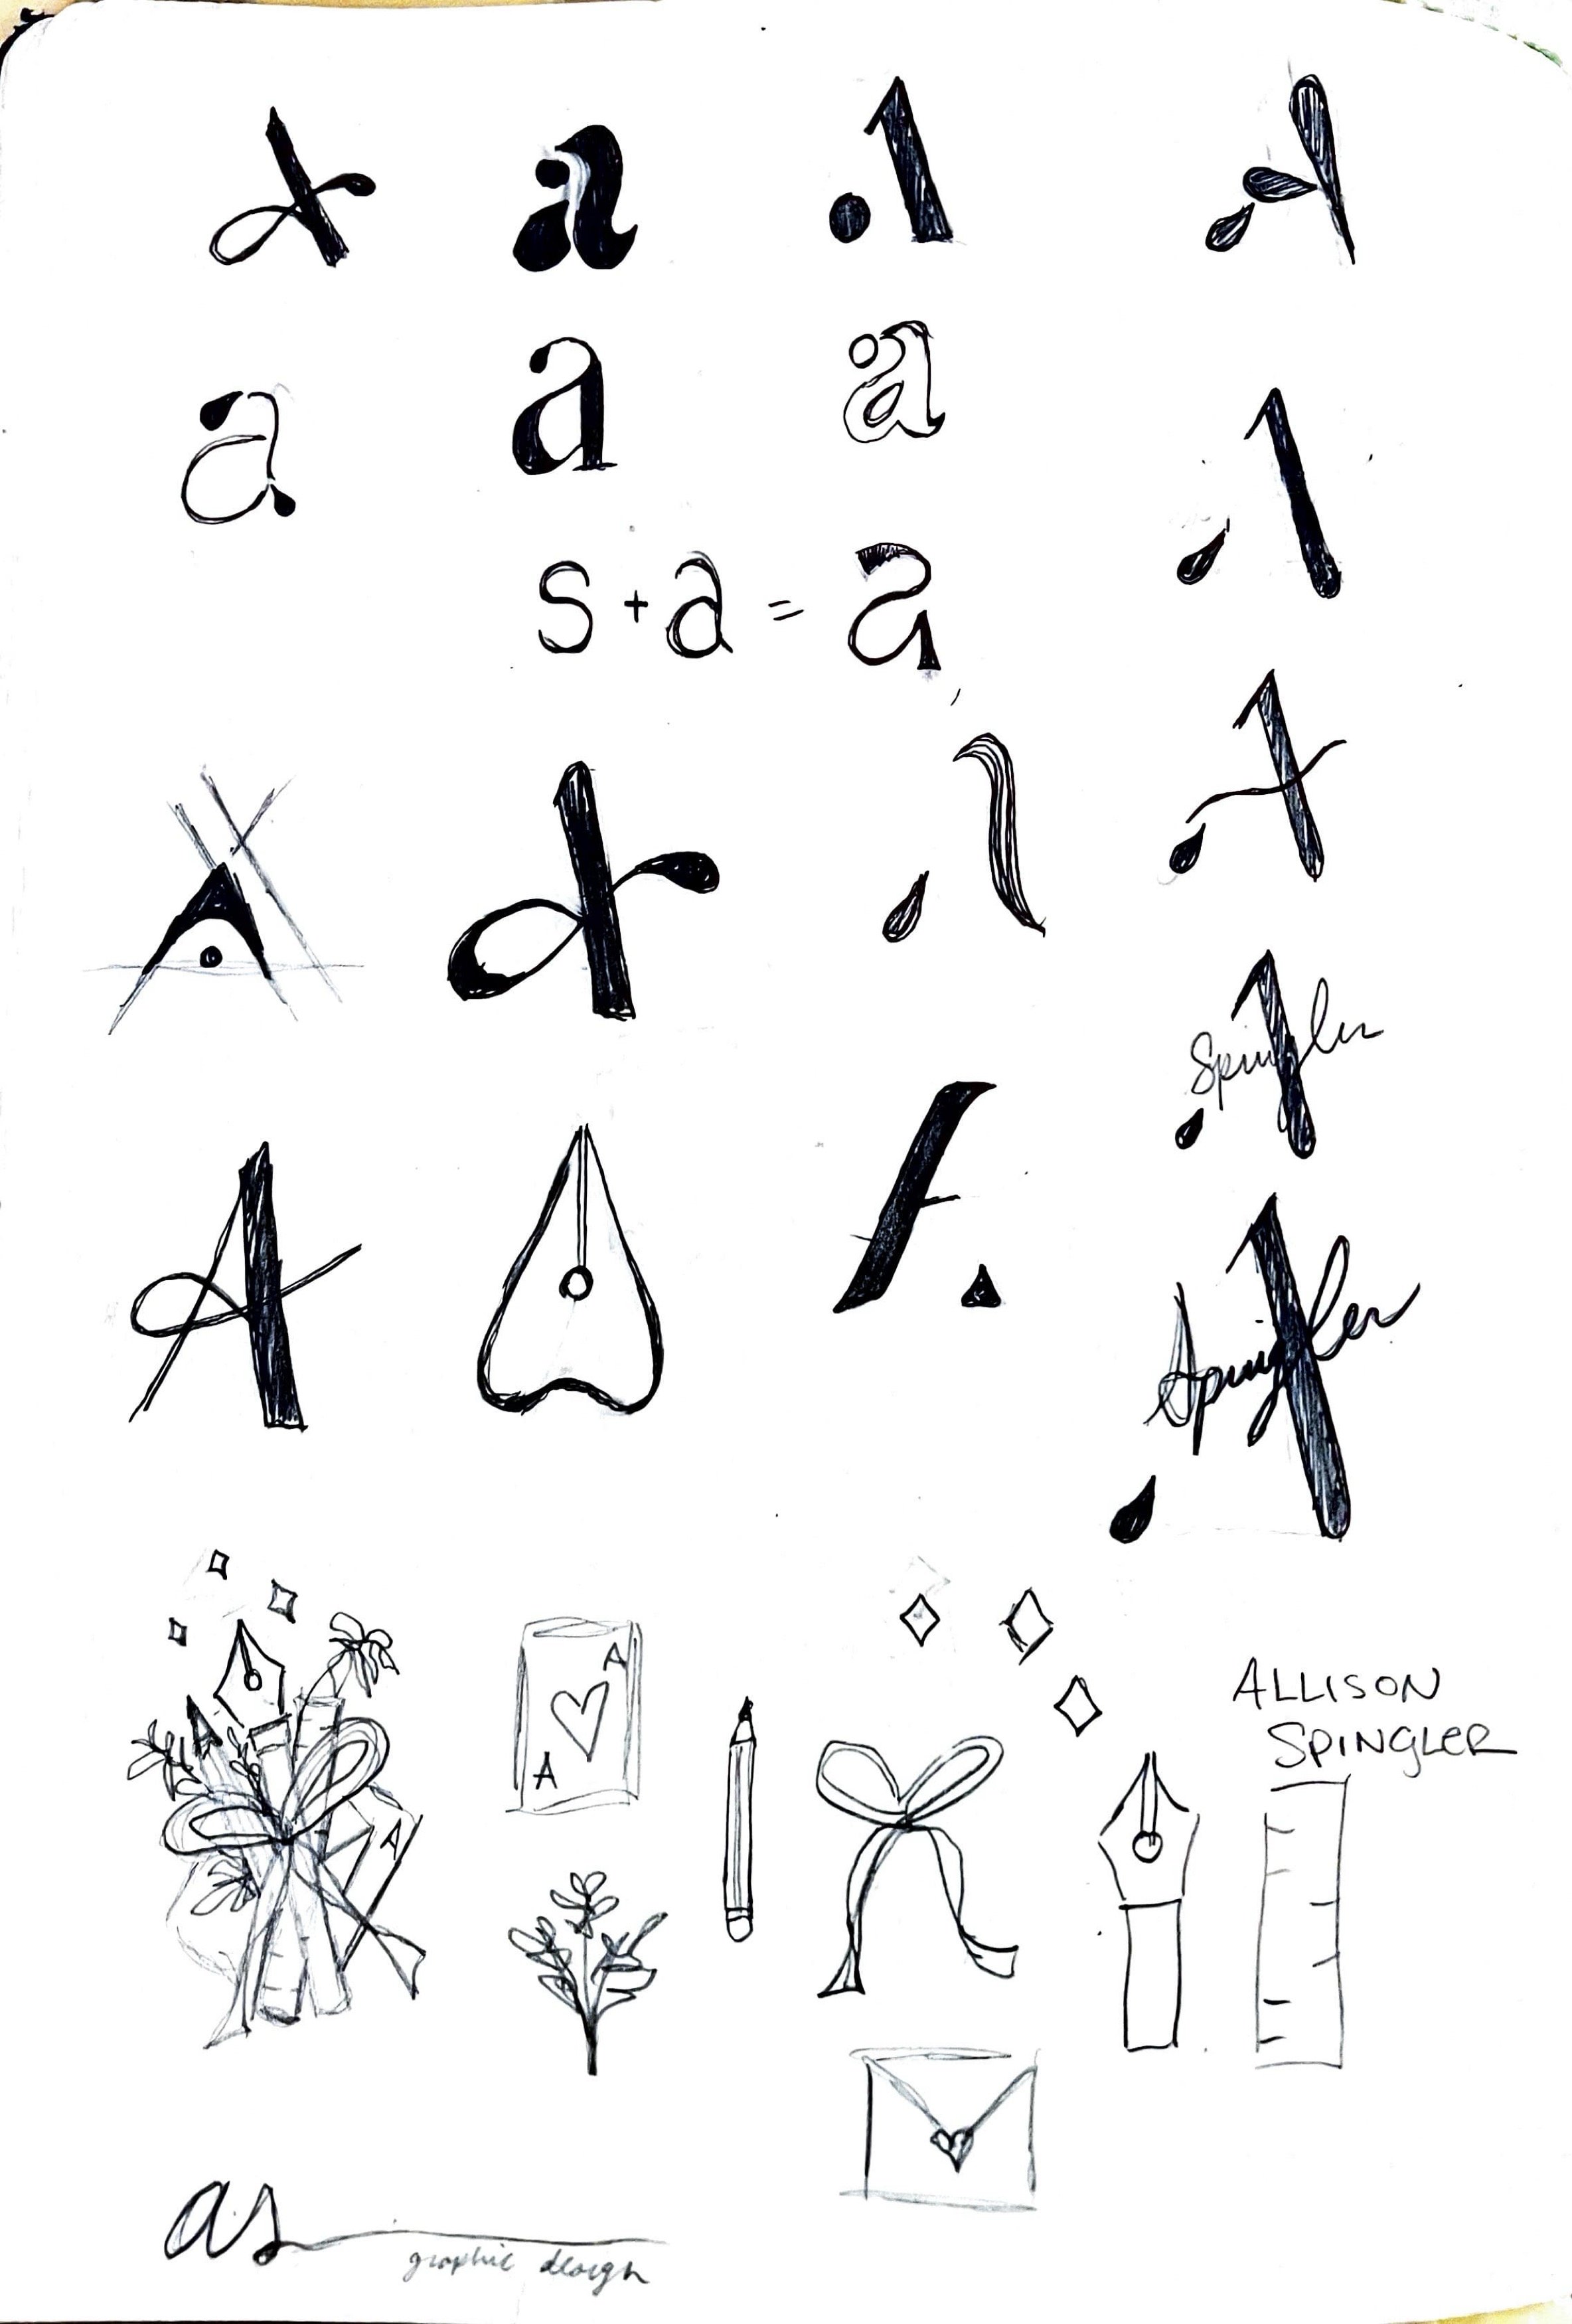 A a A A
a a a
A
s + a = a
A
A a A
Spingler
A A
Spingler
A
A
A
A
ALLISON
SPINGLER
A
as
graphic design